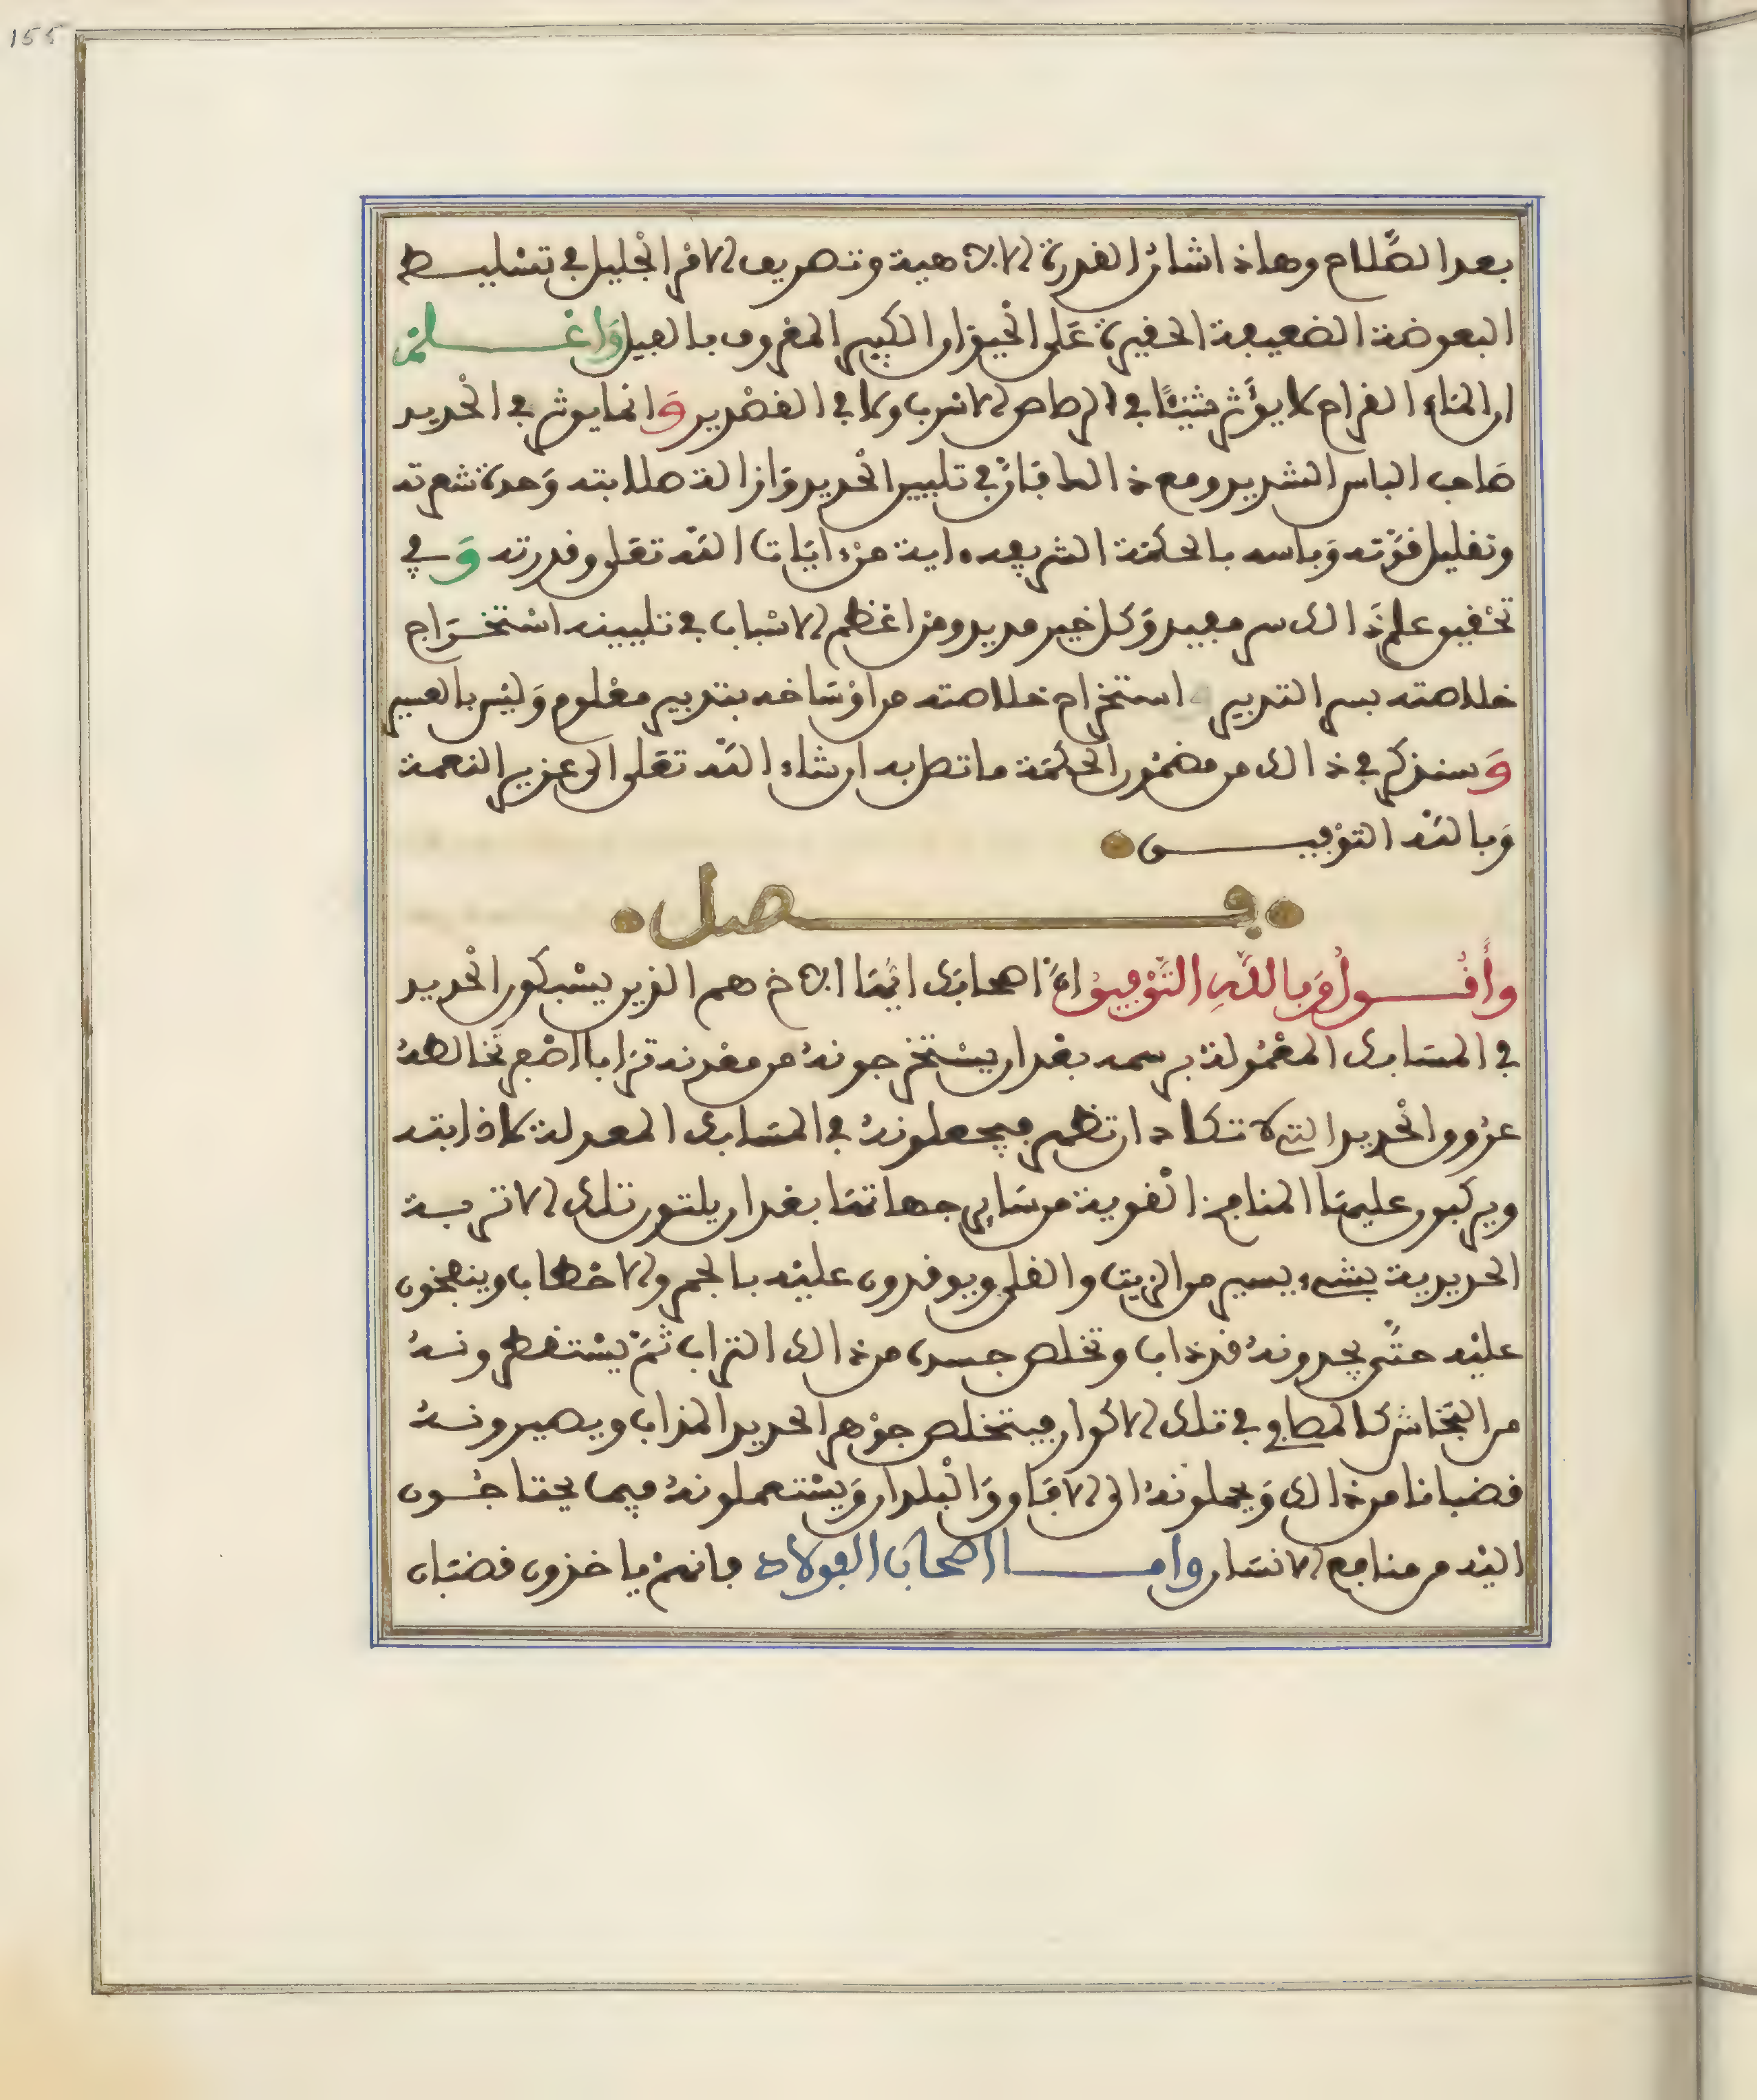 155
بعد الظلام وهاذا شان القدرة الالاهية وتصريف الامر الجليل في تسليط
البعوضة الضعيفة الحقيرة على الحيوان الكبير المعروف بالفيل واعلم
ان الماء القراح لا يؤثر شيئا في الرصاص الاسرب ولا في القصدير وانما يوثر في الحديد
صاحب الباس الشديد ومع ذالك فان في تليين الحديد وازالة صلابته وحدة شعرته
وتقليل قوته وباسه بالحكمة الشريفه ءاية من ءايات الله تعلى وقدرته وفي
تحقيق علم ذالك سر مفيد وكل خير مديد ومن اعظم الاسباب في تليينه استخراج
خلاصته بسر التدبير استخراج خلاصته من اوساخه بتدبير معلوم وليس بالعسير
وسنذكر في ذالك من مضمون الحكمة ما تصل به ان شاء الله تعلى الى عزيز النعمة
وبالله التوفيق
فصل
وأقول وبالله التوفيق ان اصحابك ايها الاخ هم الذين يسبكون الحديد
في المسابك المعمولة برسمه بعد ان يستخرجونه من معدنه ترابا اصفر تخالطه
عروق الحديد التي لا تكاد ان تظهر فيجعلونه في المسابك المعدلة لاذابته
ويركبون عليها المنافخ القوية من ساير جهاتها بعد ان يلتون تلك الاتربة
الحديدية بشيء يسير من الزيت والقلي ويوقدون عليه بالجمر والاحطاب وينفخون
عليه حتى يجدونه قد ذاب وتخلص جسده من ذالك التراب ثم يستقطرونه
من البخاش كالمصافي في تلك الاكوار فيتخلص جوهر الحديد المذاب ويصيرونه
قضبانا من ذالك ويحملونه الى الافاق والبلدان ويستعملونه فيما يحتاجون
اليه من منافع الانسان واما اصحاب الفولاد فانهم ياخذون قضبان